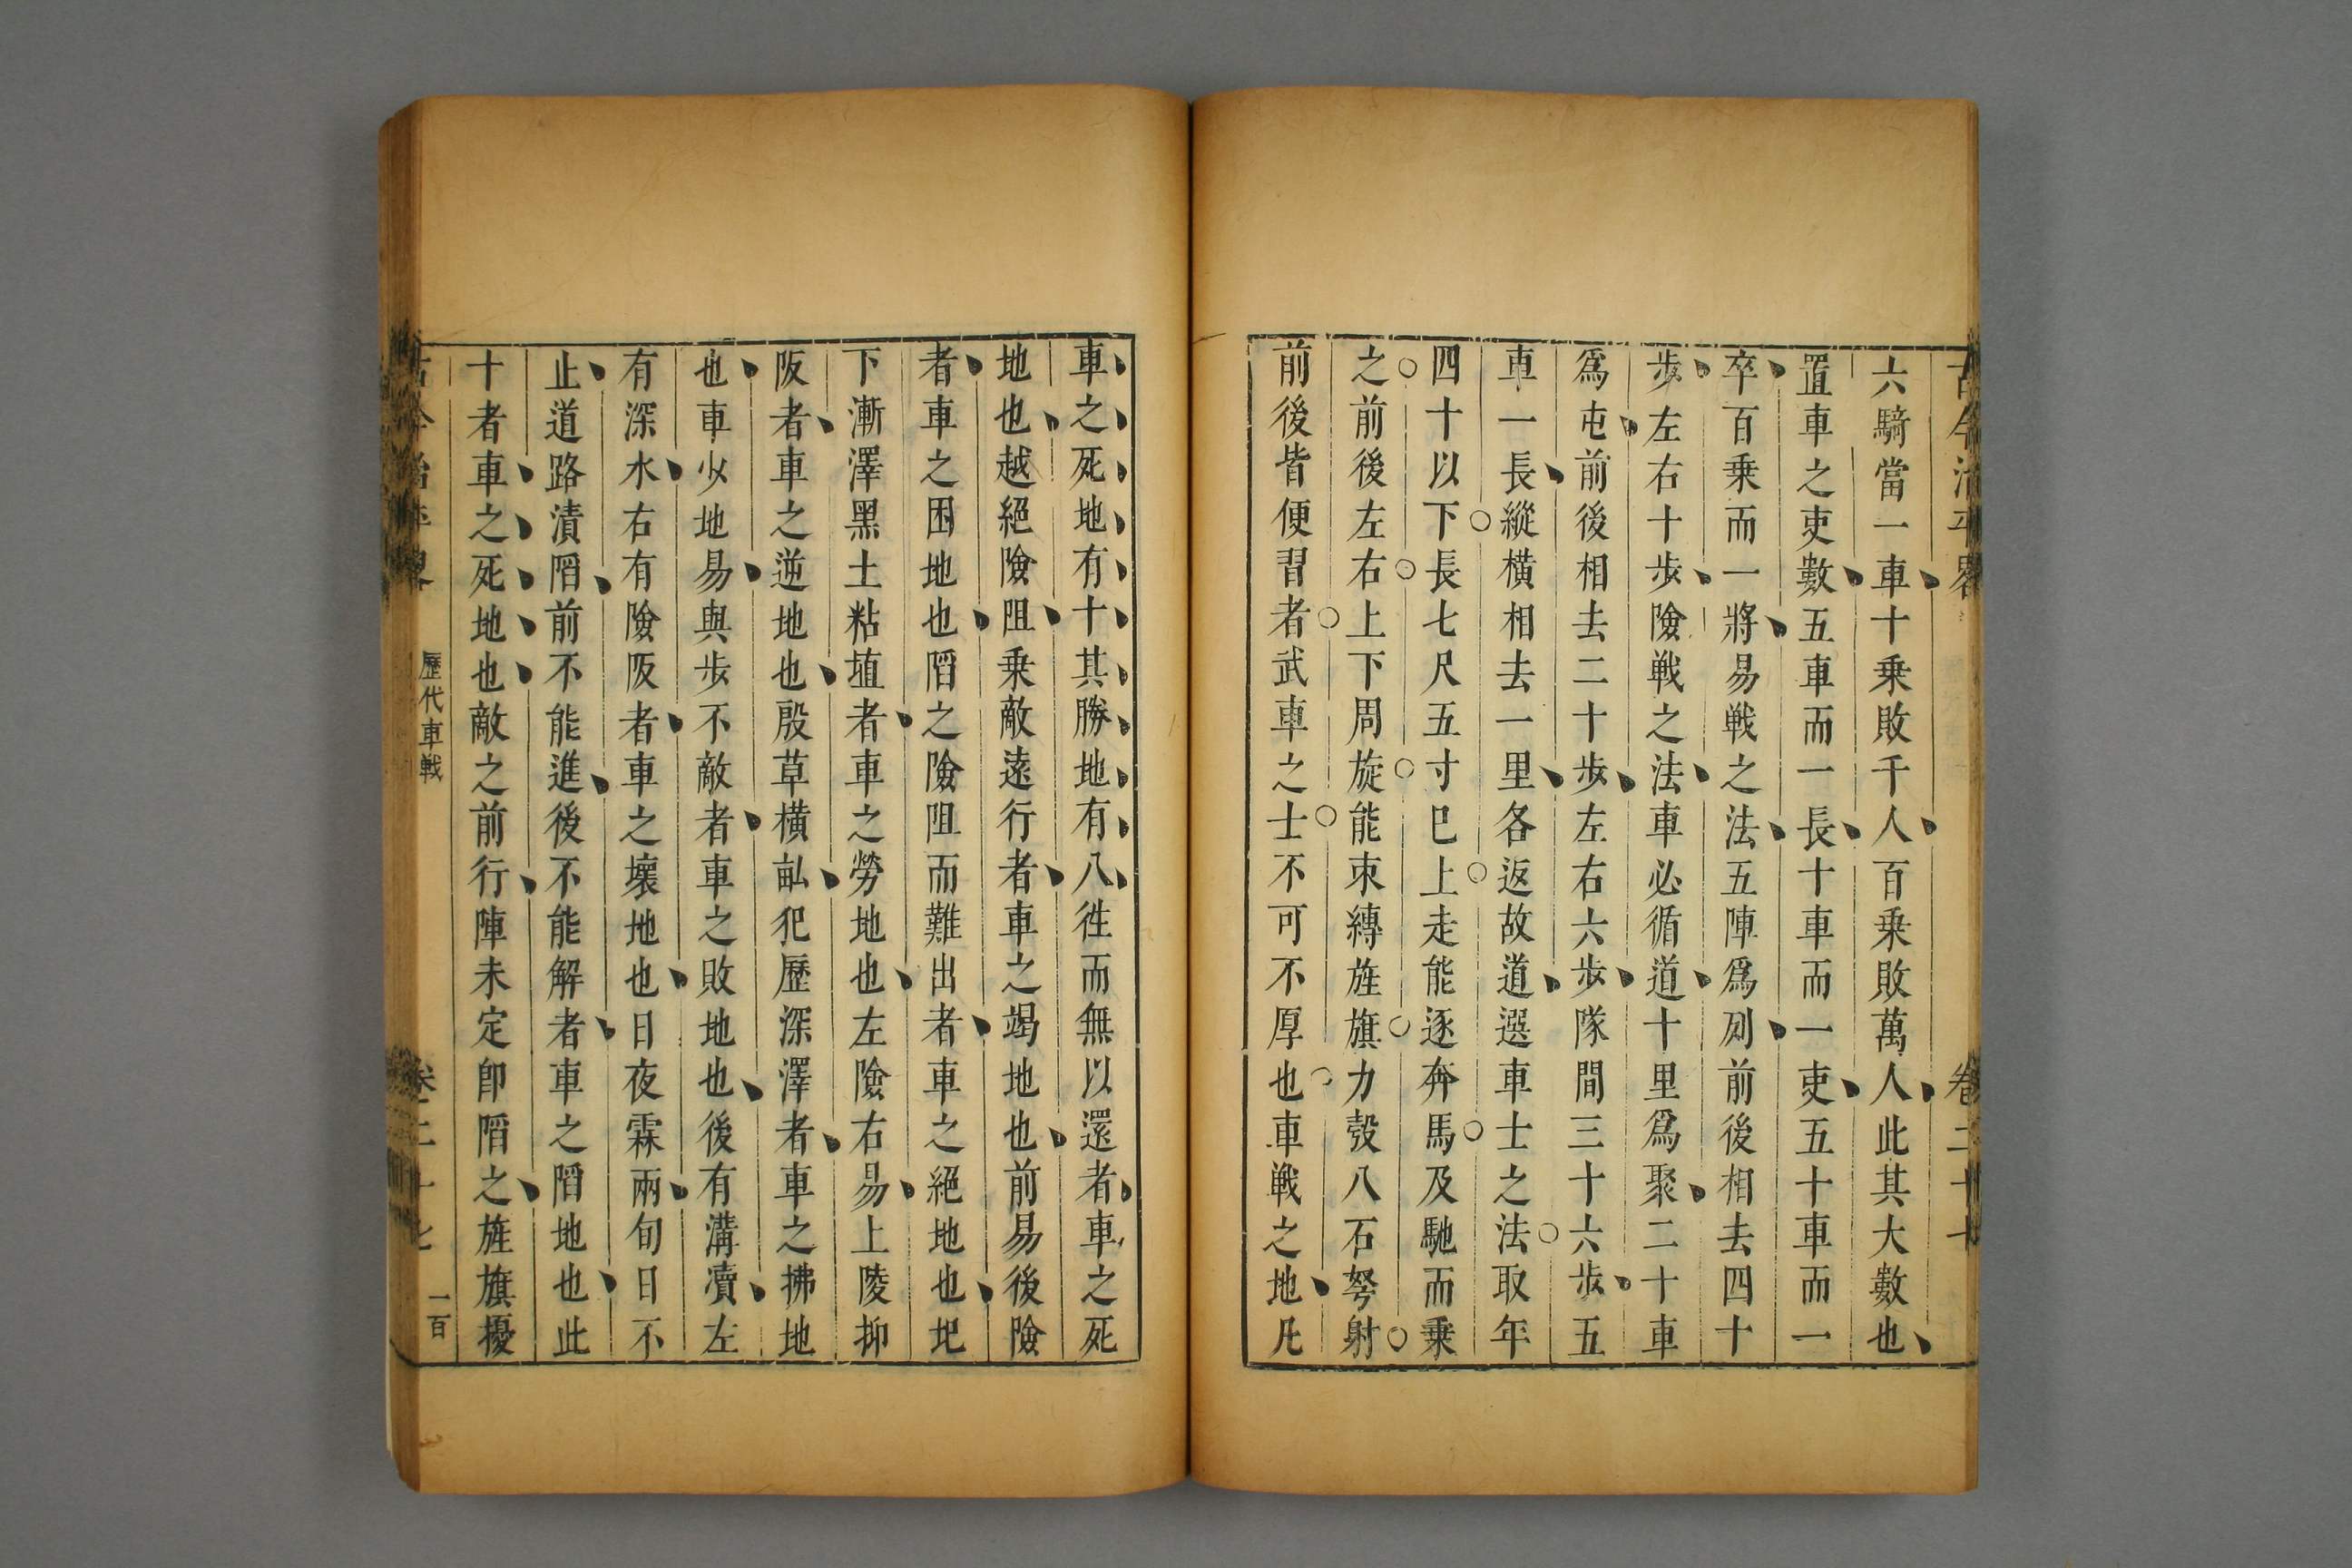 六騎當一車十乗敗千人百乗敗萬人此其大數也
置車之吏數五車而一長十車而一吏五十車而一
卒百乗而一將易戦之法五陣爲列前後相去四十
歩左右十歩險戦之法車必循道十里爲聚二十車
爲屯前後相去二十歩左右六歩隊間三十六歩五
車一長縱横相去一里各返故道選車士之法取年
四十以下長七尺五寸巳上走能逐奔馬及馳而乗
之前後左右上下周旋能束縛旌旗力彀八石弩射
前後皆便習者武車之士不可不厚也車戦之地凡
車之死地有十其勝地有八徃而無以還者車之死
地也越絕險阻乗敵遠行者車之竭地也前易後險
者車之困地也陷之險阻而難出者車之絕地也圯
下漸澤黑土粘埴者車之勞地也左險右易上陵抑
阪者車之逆地也殷草横畆犯歷深澤者車之拂地
也車少地易與歩不敵者車之敗地也後有溝瀆左
有深水右有險阪者車之壞地也日夜霖兩旬日不
止道路潰陷前不能進後不能解者車之陷地也此
十者車之死地也敵之前行陣未定卽陷之旌旗擾
歷代車戦
卷二十七
一百